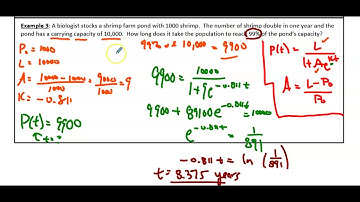 Example 3: A biologist stocks a shrimp farm pond with 1000 shrimp. The number of shrimp double in one year and the
pond has a carrying capacity of 10,000. How long does it take the population to reach 99% of the pond's capacity?
P₀ = 1000
L = 10000
A = (10000 - 1000)/1000 = 9000/1000 = 9
K = -0.811
P(t) = 9900
t = ?
99% of 10,000 = 9900
9900 = 10000/(1 + 9e^(-0.811t))
9900 + 89100e^(-0.811t) = 10000
e^(-0.811t) = 1/891
-0.811t = ln(1/891)
t = 8.375 years
P(t) = L/(1 + Ae^(Kt))
A = (L - P₀)/P₀